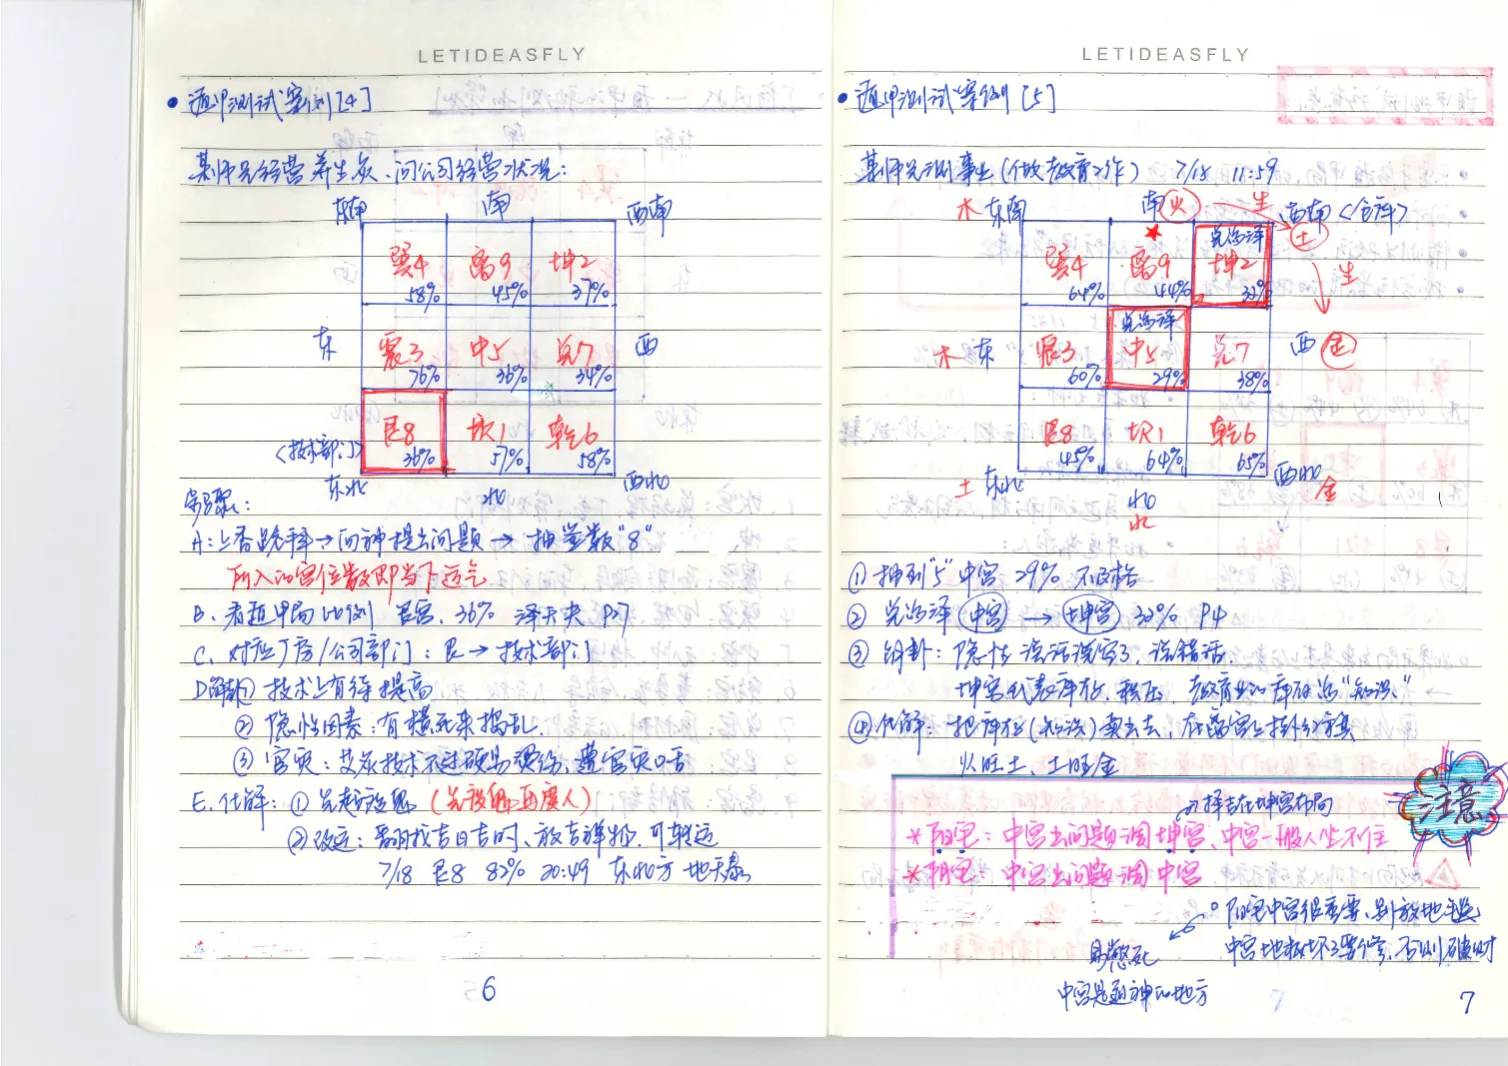 LETIDEASFLY
• 遁甲测试案例[4]
某师兄经营养生灸、问公司经营状况：
东南 南 西南
巽4 离9 坤2
58% 45% 37%
东 震3 中5 兑7 西
76% 36% 34%
<技术部门> 艮8 坎1 乾6
36% 57% 58%
东北 北 西北
步骤：
A：上香跪拜→向神提出问题→抽签数"8"
所入的宫位数即当下运气
B. 看遁甲局比例 艮宫. 36% 泽天夬 P27
C. 对应厂房/公司部门：艮→技术部门
D解卦① 技术上有待提高
② 隐性因素：有横死来捣乱.
③ 官灾：艾灸技术不过硬易烫伤、遭官灾口舌
E. 化解：① 先超渡
② 改运：需用找吉日吉时、放吉祥物.可转运
7/18 艮8 82% 20:49 东北方 地天泰
6
LETIDEASFLY
• 遁甲测试案例[5]
某师兄测事业(做教育工作) 7/18 11:59
木 东南 南 火 生 西南 <仓库>
★ 兑为泽 土
巽4 离9 坤2
64% 44% 32% 生
兑为泽
木 东 震3 中5 兑7 西 金
60% 29% 38%
艮8 坎1 乾6
45% 64% 65%
土 东北 北 西北
水 金
① 抽到"5"中宫 29% 不及格
② 兑为泽 中宫 → 坤宫 32% P4
③ 解卦：隐性 说话泄密了、说错话.
坤宫代表库存、积压. 教育业的库存为"知识."
④ 化解：把库存(知识)卖出去、在离宫上挂
火旺土、土旺金
择吉在坤宫布局
注意
* 阳宅：中宫出问题调坤宫、中宫一般人坐不住
* 阴宅：中宫出问题调中宫
阳宅中宫很重要、别放地毯
中宫地板坏了要修、否则破财
易憋死
中宫是通神的地方
7